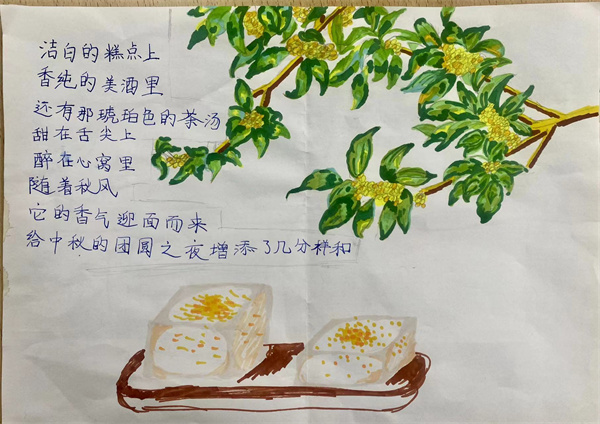 洁白的糕点上
香纯的美酒里
还有那琥珀色的茶汤
甜在舌尖上
醉在心窝里
随着秋风
它的香气迎面而来
给中秋的团圆之夜增添了几分祥和